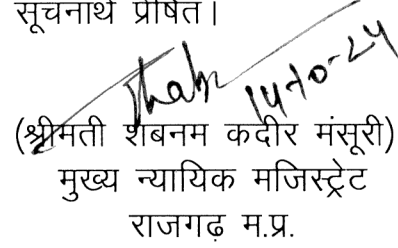 सूचनार्थ प्रेषित।
14-10-24
(श्रीमती शबनम कदीर मंसूरी)
मुख्य न्यायिक मजिस्ट्रेट
राजगढ़ म.प्र.